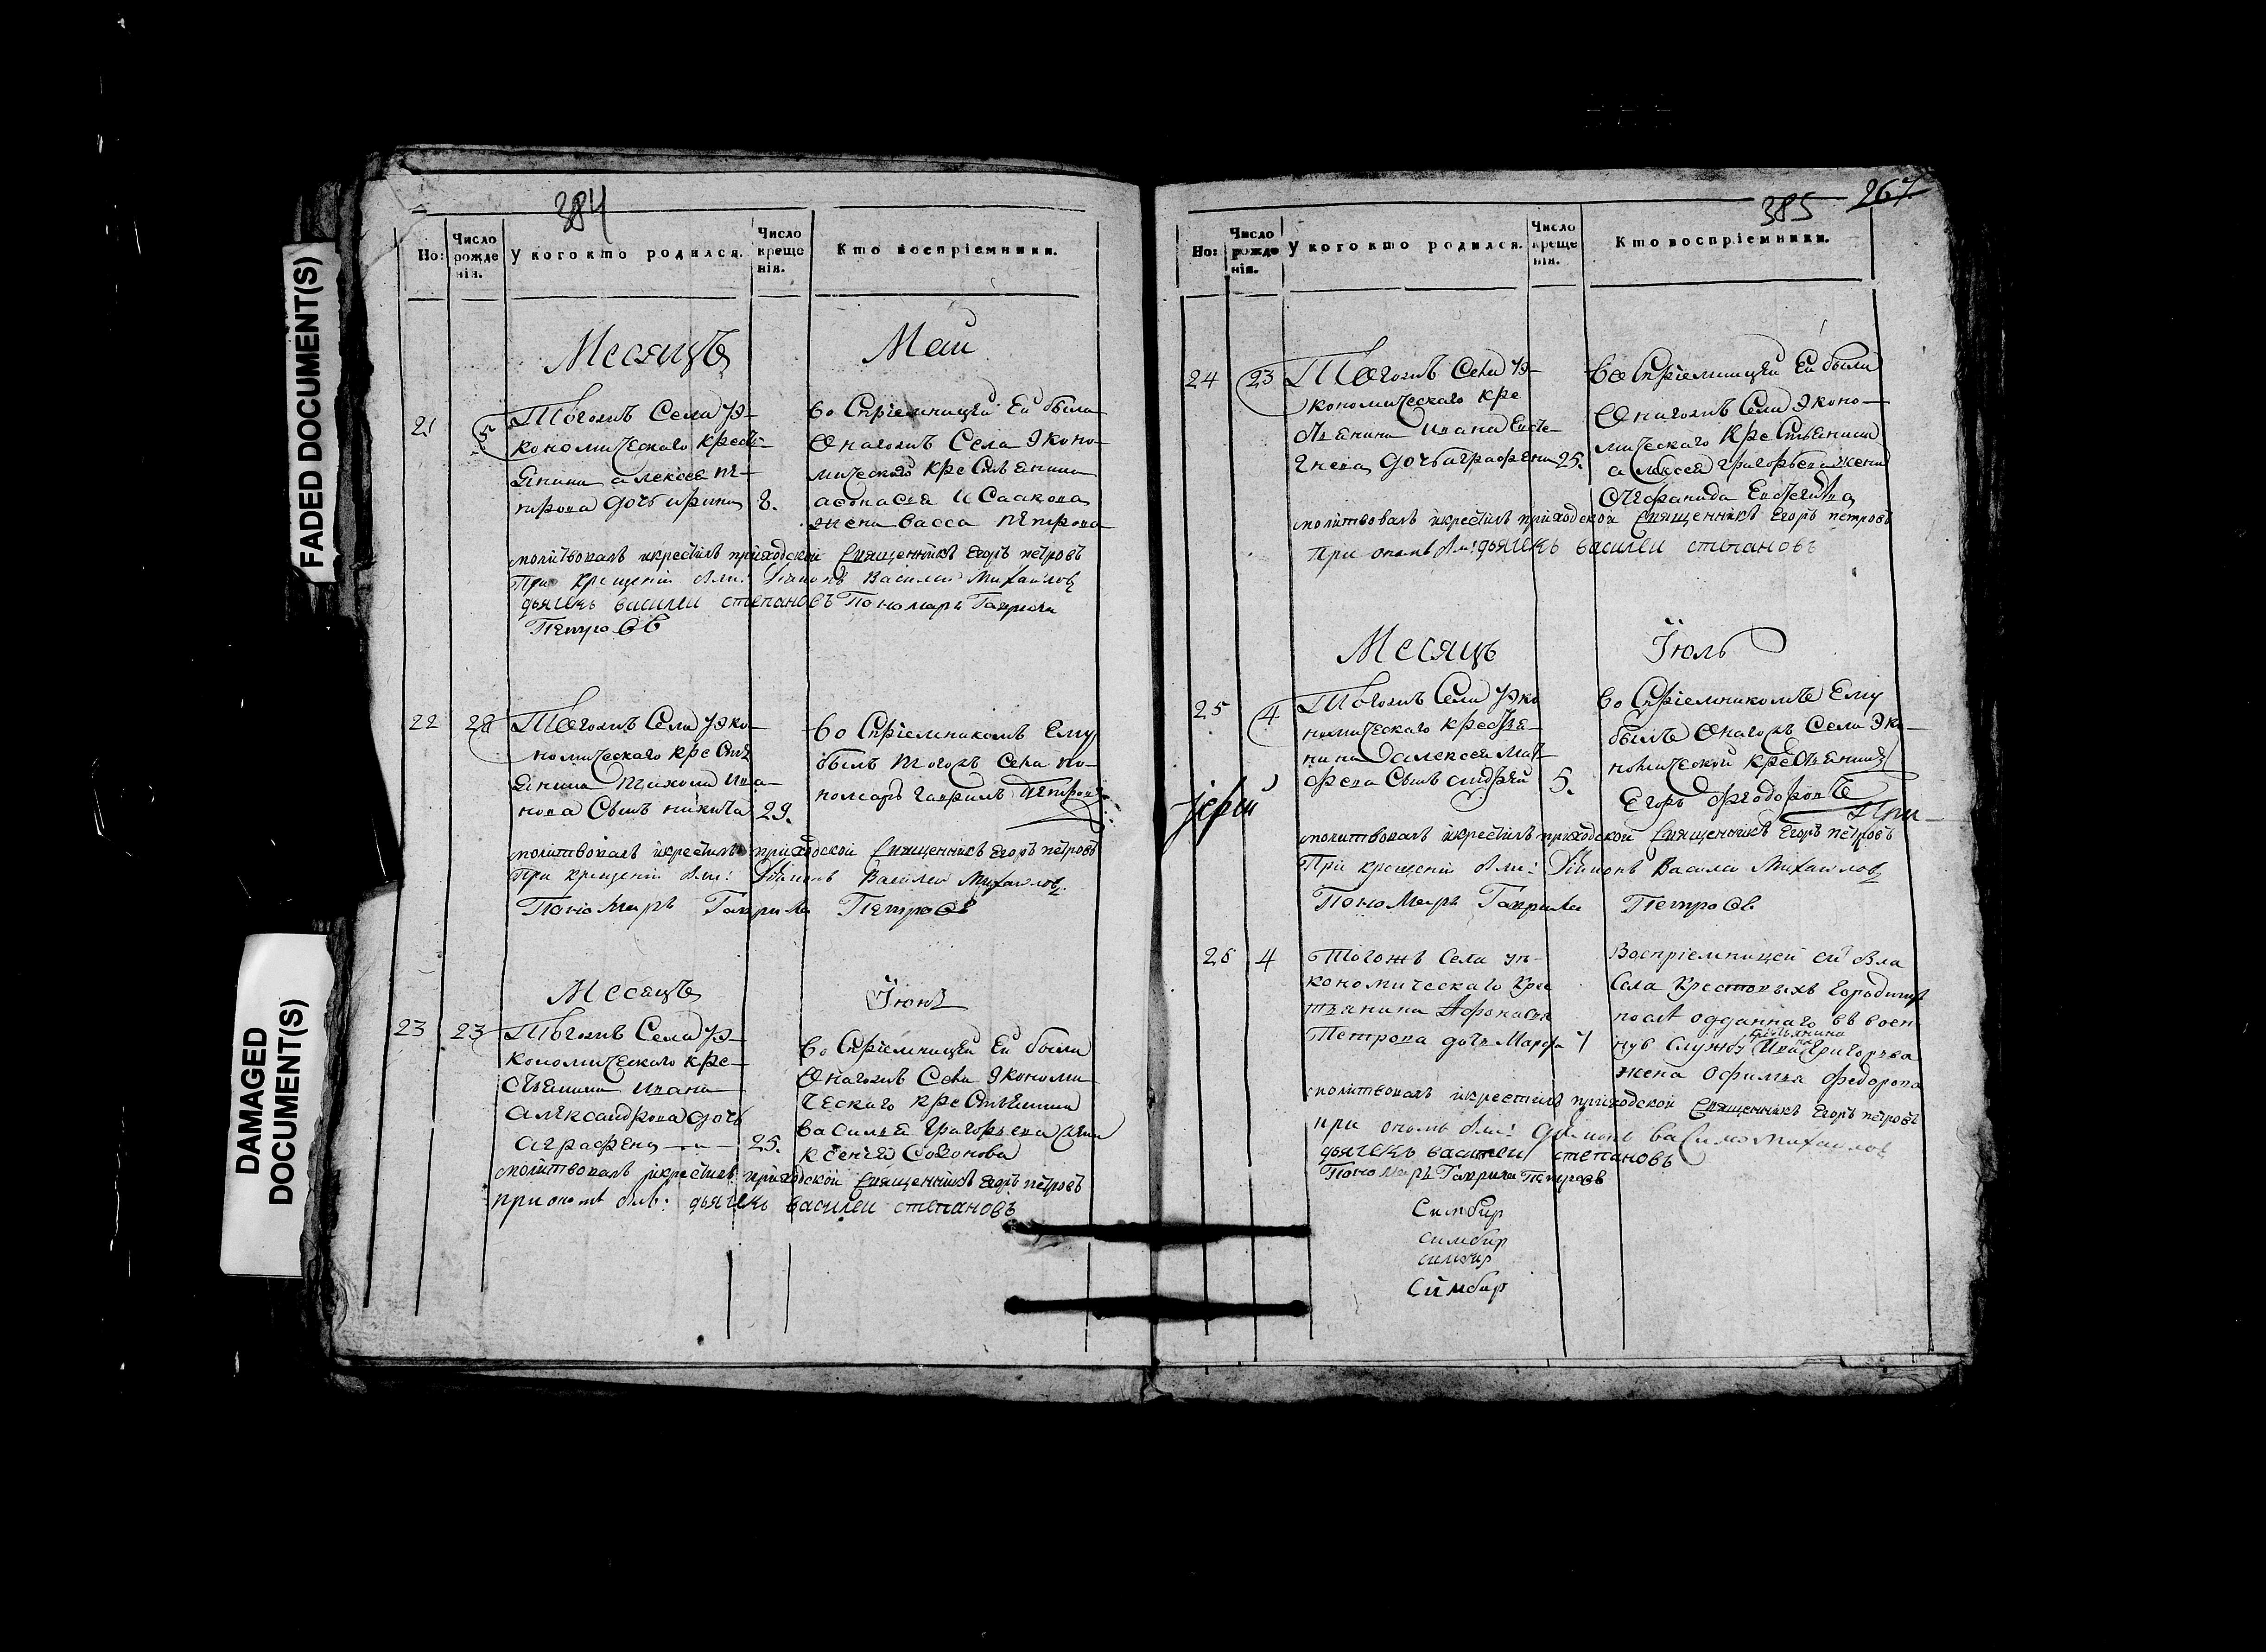 FADED DOCUMENT(S)
DAMAGED
DOCUMENT(S)
384
Но:
Число
рожде
нія.
У кого кто родился.
Число
креще
нія.
Кто воспріемники.
Месяцъ Маи
21 5 Тогожъ Села Э-
кономическаго крест-
янина алексея Пе-
трова дочь ирина 8.
воспріемницеи Еи была
Онагожъ Села Эконо-
мическаго крестьянина
афонасья Исаакова
жена васса петрова
молитвовалъ икрестилъ приходской Священникъ Егоръ петровъ
При крещеніи были: Діаконъ Василеи Михаиловъ
дьячекъ василеи степановъ Пономарь Гаврила
Петровъ
22 28 Тогожъ Села Эко-
номическаго крестья
янина Тихона ива-
нова Сынъ никита 29.
воспріемникомъ Ему
былъ тогожъ Села по-
номарь гаврилъ Петровъ
молитвовалъ икрестилъ приходской Священникъ Егоръ петровъ
При крещеніи были: Діаконъ Василеи Михаиловъ.
Пономарь Гаврила Петровъ
Месяцъ Июнь
23 23 Тогожъ Села Э-
кономическаго кре-
стьянина ивана
александрова дочь
аграфена 25.
воспріемницеи Еи была
Онагожъ Села Экономи
ческаго крестьянина
василья григорьева жена
ксенья Софонова
молитвовалъ икрестилъ приходской Священникъ Егоръ петровъ
при ономъ былъ: дьячекъ василеи степановъ
385 267
Но:
Число
рожде
нія.
У кого кто родился.
Число
креще
нія.
Кто воспріемники.
24 23 Тогожъ Села Э-
кономическаго кре
стьянина ивана Евсе-
гнева дочь аграфена 25.
воспріемницеи Еи была
Онагожъ Села Эконо-
мическаго крестьянина
алексея григорьева жена
молитвовалъ икрестилъ приходской Священникъ Егоръ петровъ
при ономъ былъ: дьячекъ василеи степановъ
Месяцъ Июль
25 4 Тогожъ Села Эко
номическаго крестья-
нина алексея Мат-
фева Сынъ андрей 5.
воспріемникомъ Ему
былъ Онагожъ Села Эко-
номической крестьянинъ
Егоръ федоровъ
іерей При
молитвовалъ икрестилъ приходской Священникъ Егоръ петровъ
При крещеніи были: Діаконъ Василеи Михаиловъ
Пономарь Гаврила Петровъ
26 4 Тогожъ Села эк-
кономическаго крес
тьянина Афонасья
Петрова дочь Марфа 7
Воспріемницеи еи была
Села Крестовыхъ Городищъ
послѣ отданнаго въ воен
ную Службу крестьянина Ивана Григорьева
жена Офимья Федорова
молитвовалъ икрестилъ приходской Священникъ Егоръ петровъ
при ономъ были: дьяконъ василеи михаиловъ
дьячекъ василеи степановъ
Пономарь Гаврила Петровъ
Симбир
симбир
симбир
Симбир